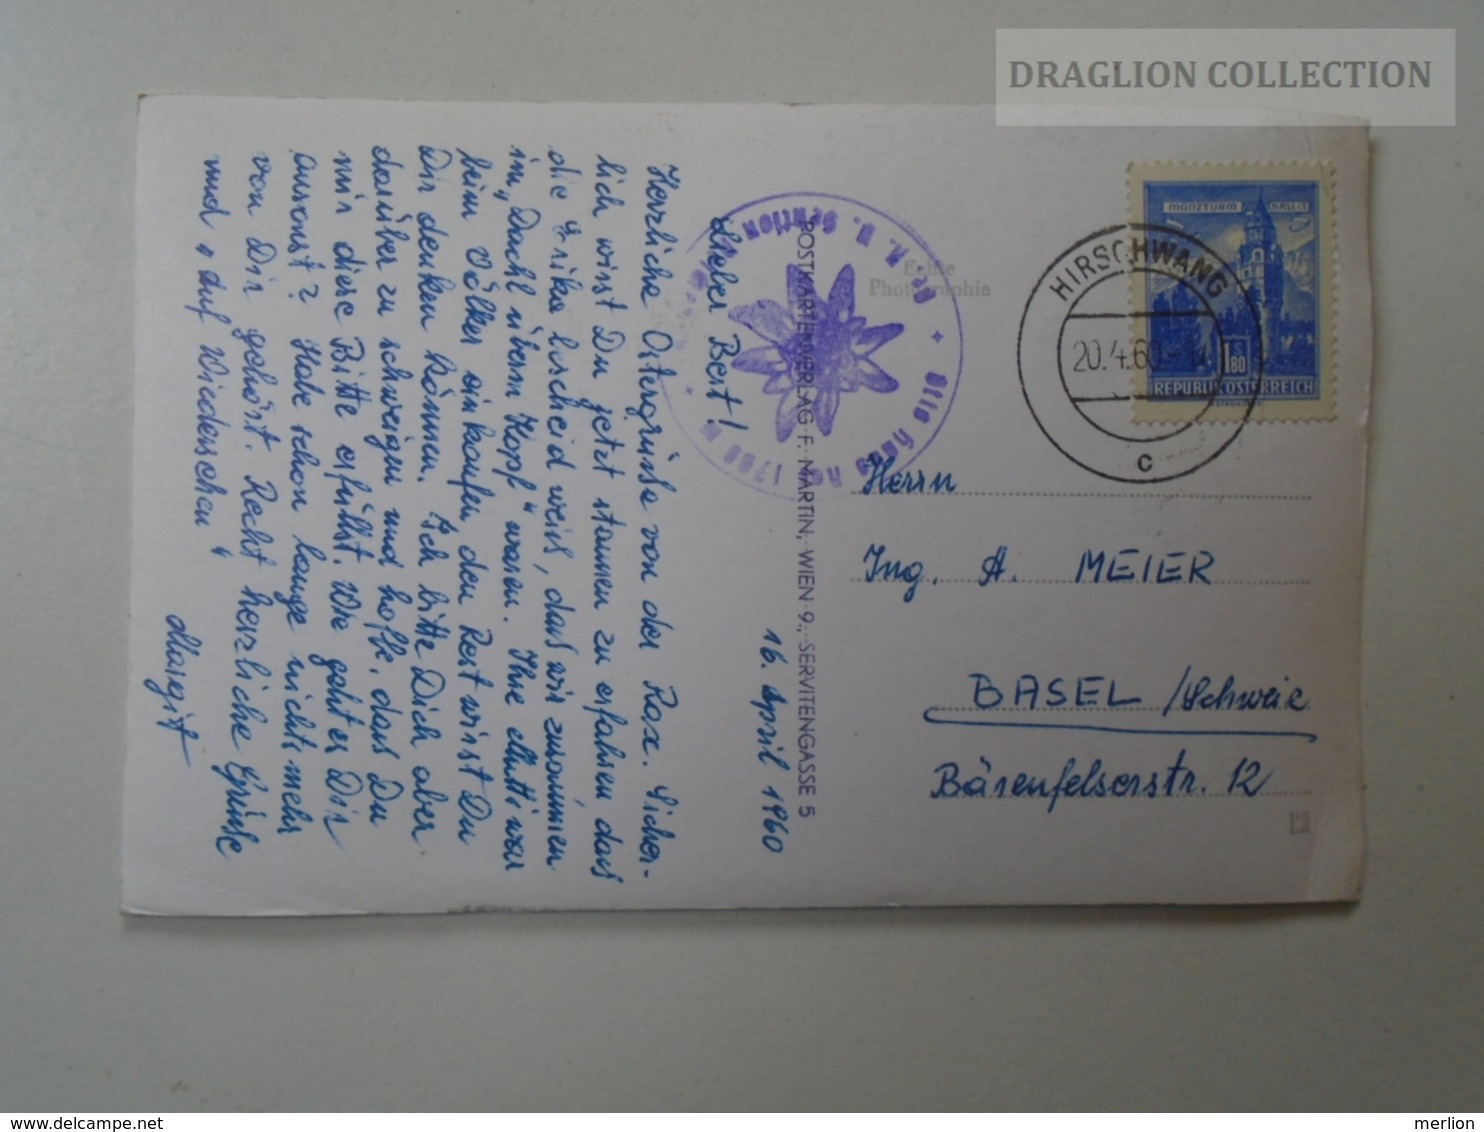 DRAGLION COLLECTION
16. April 1960
Lieber Bert!
Herzliche Ostergrüsse von der Rax. Sicher-
lich wirst Du jetzt staunen zu erfahren dass
die Erika bescheid weiss, dass wir zusammen
im „Dachl überm Kopf" waren. Ihre Mutti war
beim Völker einkaufen den Rest wirst Du
Dir denken können. Ich bitte Dich aber
darüber zu schweigen und hoffe, dass Du
mir diese Bitte erfüllst. Wie geht es Dir
ansonst? Habe schon lange nichts mehr
von Dir gehört. Recht herzliche Grüsse
und „auf Wiedersehen"
Margit
POSTKARTENVERLAG F. MARTIN, WIEN 9., SERVITENGASSE 5
Echte
Photographie
Otto Haus
Sektion
HIRSCHWANG
20.4.60
c
MÜNZTURM HALL i. T.
1.80
REPUBLIK ÖSTERREICH
Herrn
Ing. A. MEIER
BASEL /Schweiz
Bärenfelserstr. 12
merlion - delcampe.net